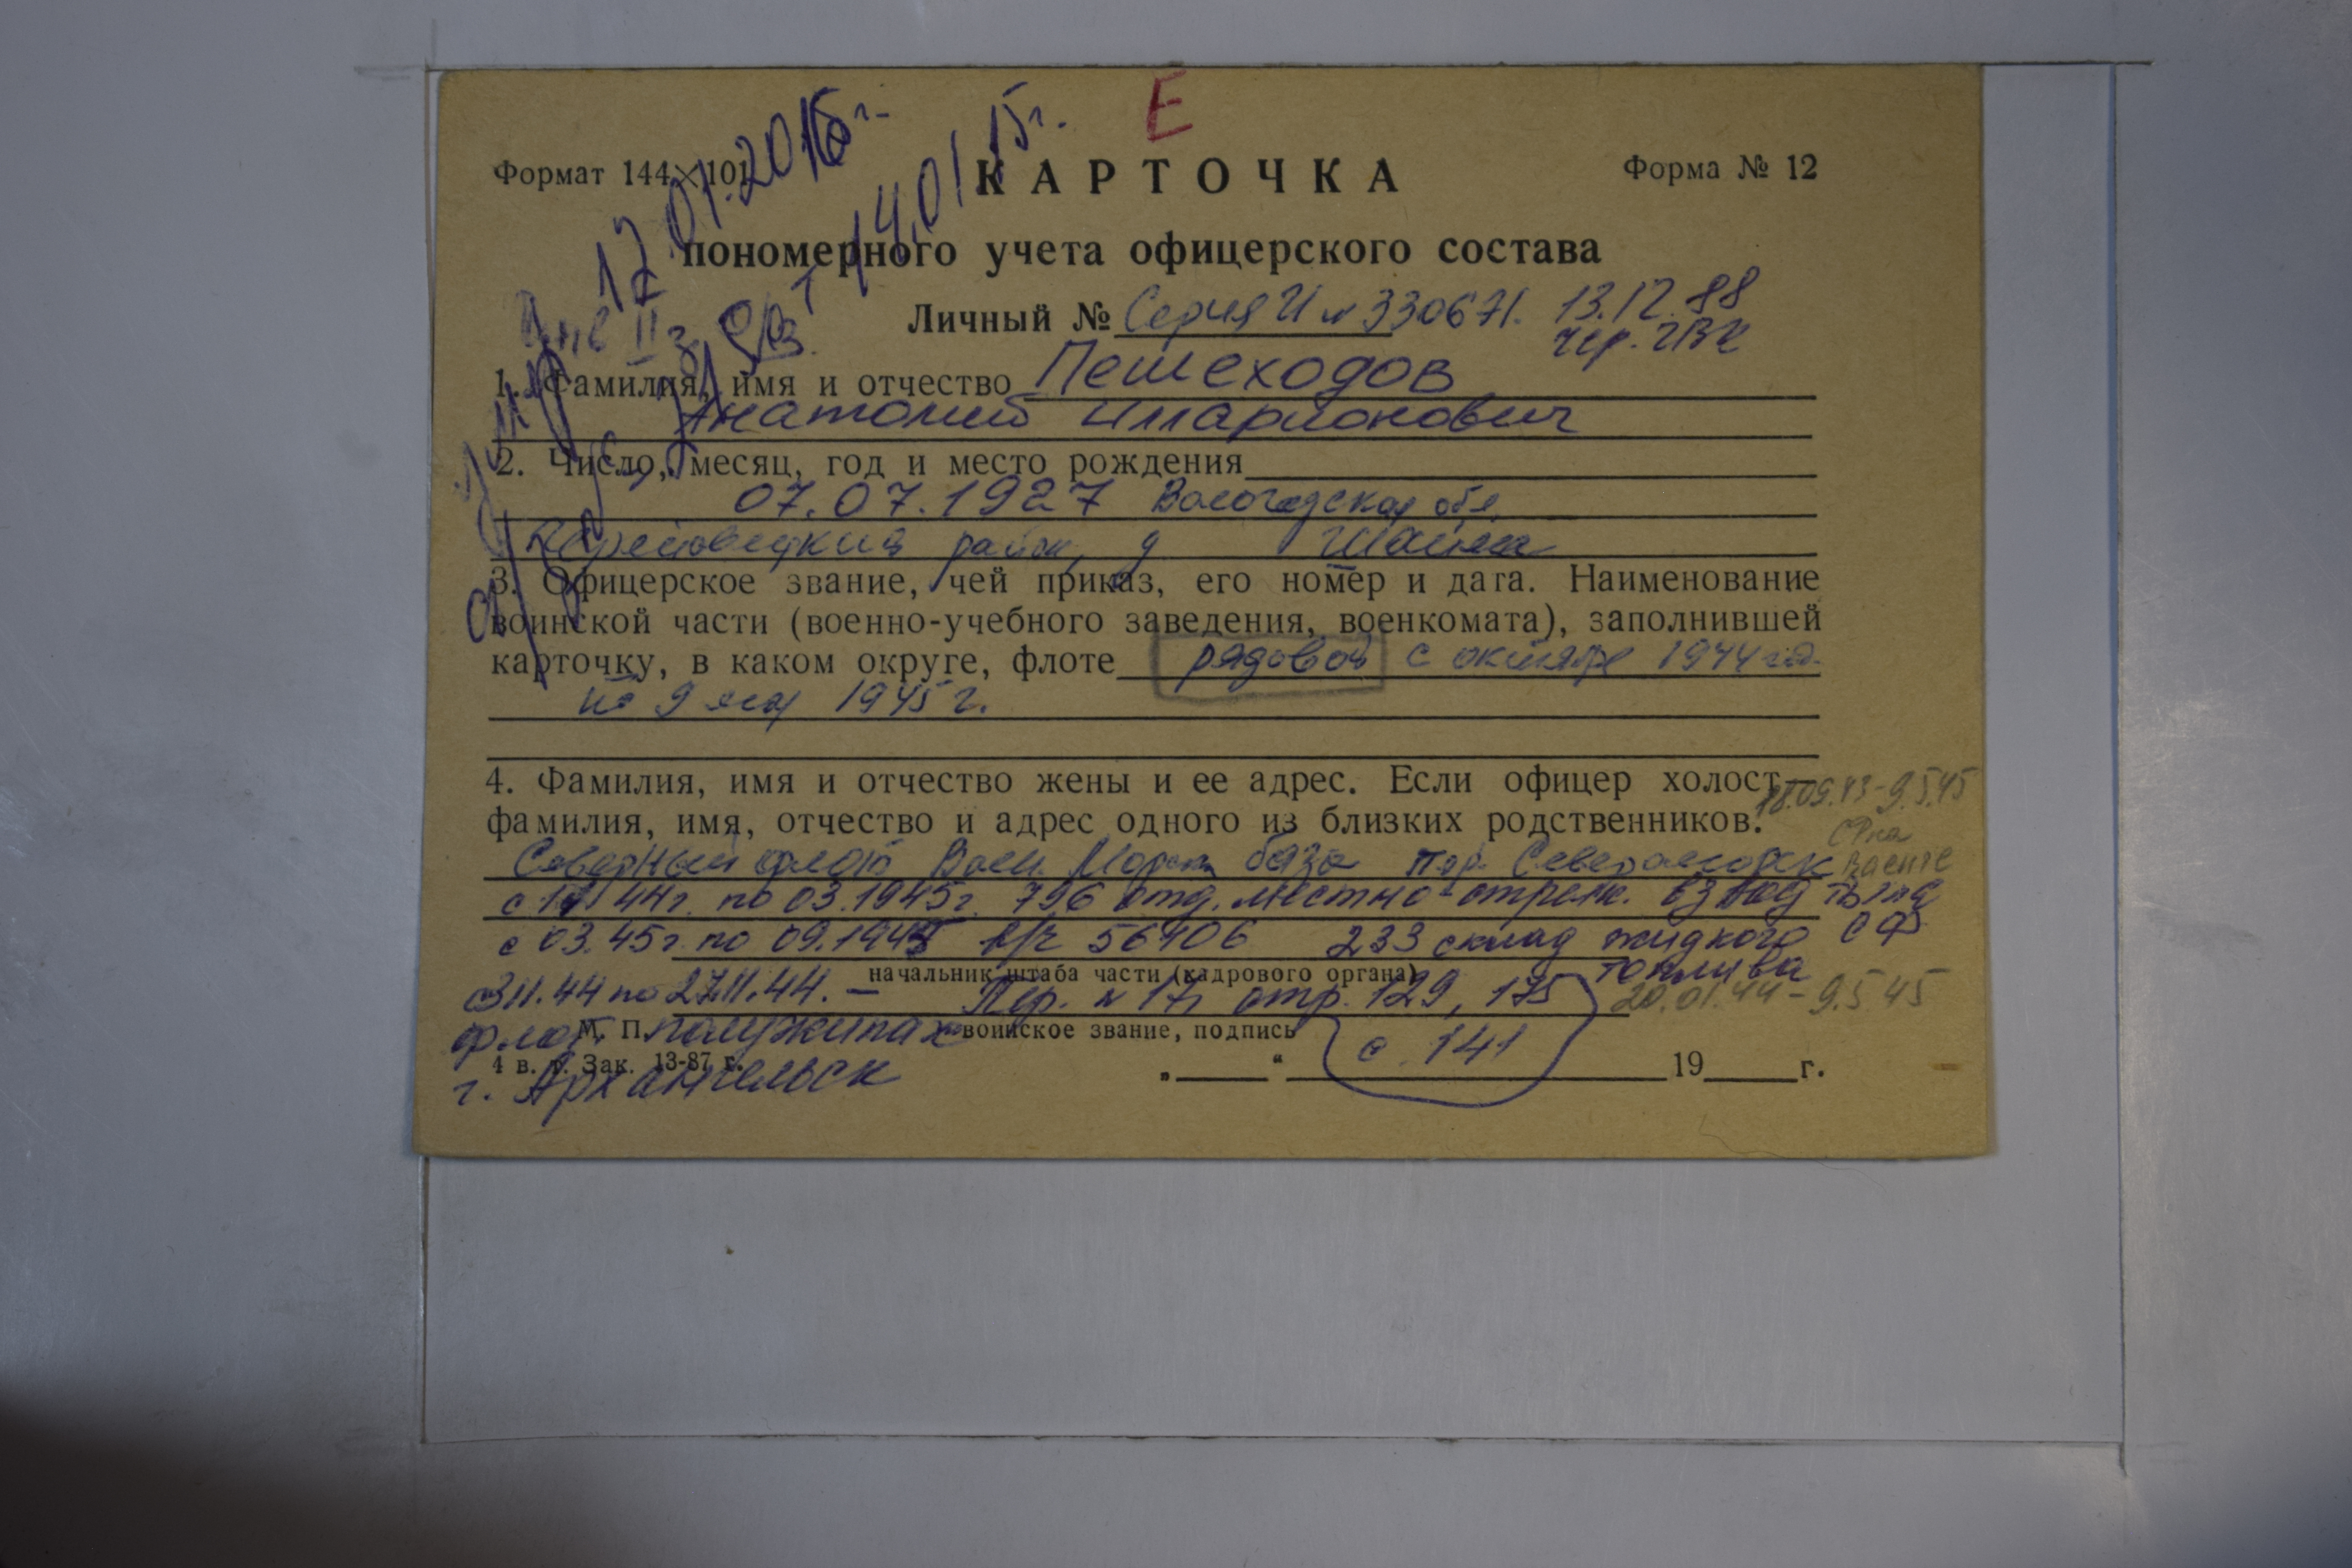 Е
17.01.2016г.
14.01.15г.
Формат 144×101
КАРТОЧКА
Форма № 12
пономерного учета офицерского состава
Личный № Серия И № 330671. 13.12.88
Чер. ГВК
Инв II г
1. Фамилия, имя и отчество Пешеходов
Анатолий Илларионович
2. Число, месяц, год и место рождения
07.07.1927 Вологодская обл.
Череповецкий район, д
3. Офицерское звание, чей приказ, его номер и дата. Наименование
воинской части (военно-учебного заведения, военкомата), заполнившей
карточку, в каком округе, флоте рядовой с октября 1944 год.
по 9 мая 1945 г.
4. Фамилия, имя и отчество жены и ее адрес. Если офицер холост—
18.09.43-9.5.45
фамилия, имя, отчество и адрес одного из близких родственников.
Северный флот Воен. Морск база гор. Североморск Ваенге
с 11 44г. по 03.1945г. 796 отд. местно-стрелк. взвод тыла
с 03.45г. по 09.1945 в/ч 56406 233 склад жидкого СФ
топлива
начальник штаба части (кадрового органа)
с 3.11.44 по 27.11.44. — Пер. № 17, стр. 129, 175
20.01.44-9.5.45
флот. полуэкипаж
М. П. воинское звание, подпись
с. 141
4 в. т. Зак. 13-87 г.
„ “ 19 г.
г. Архангельск